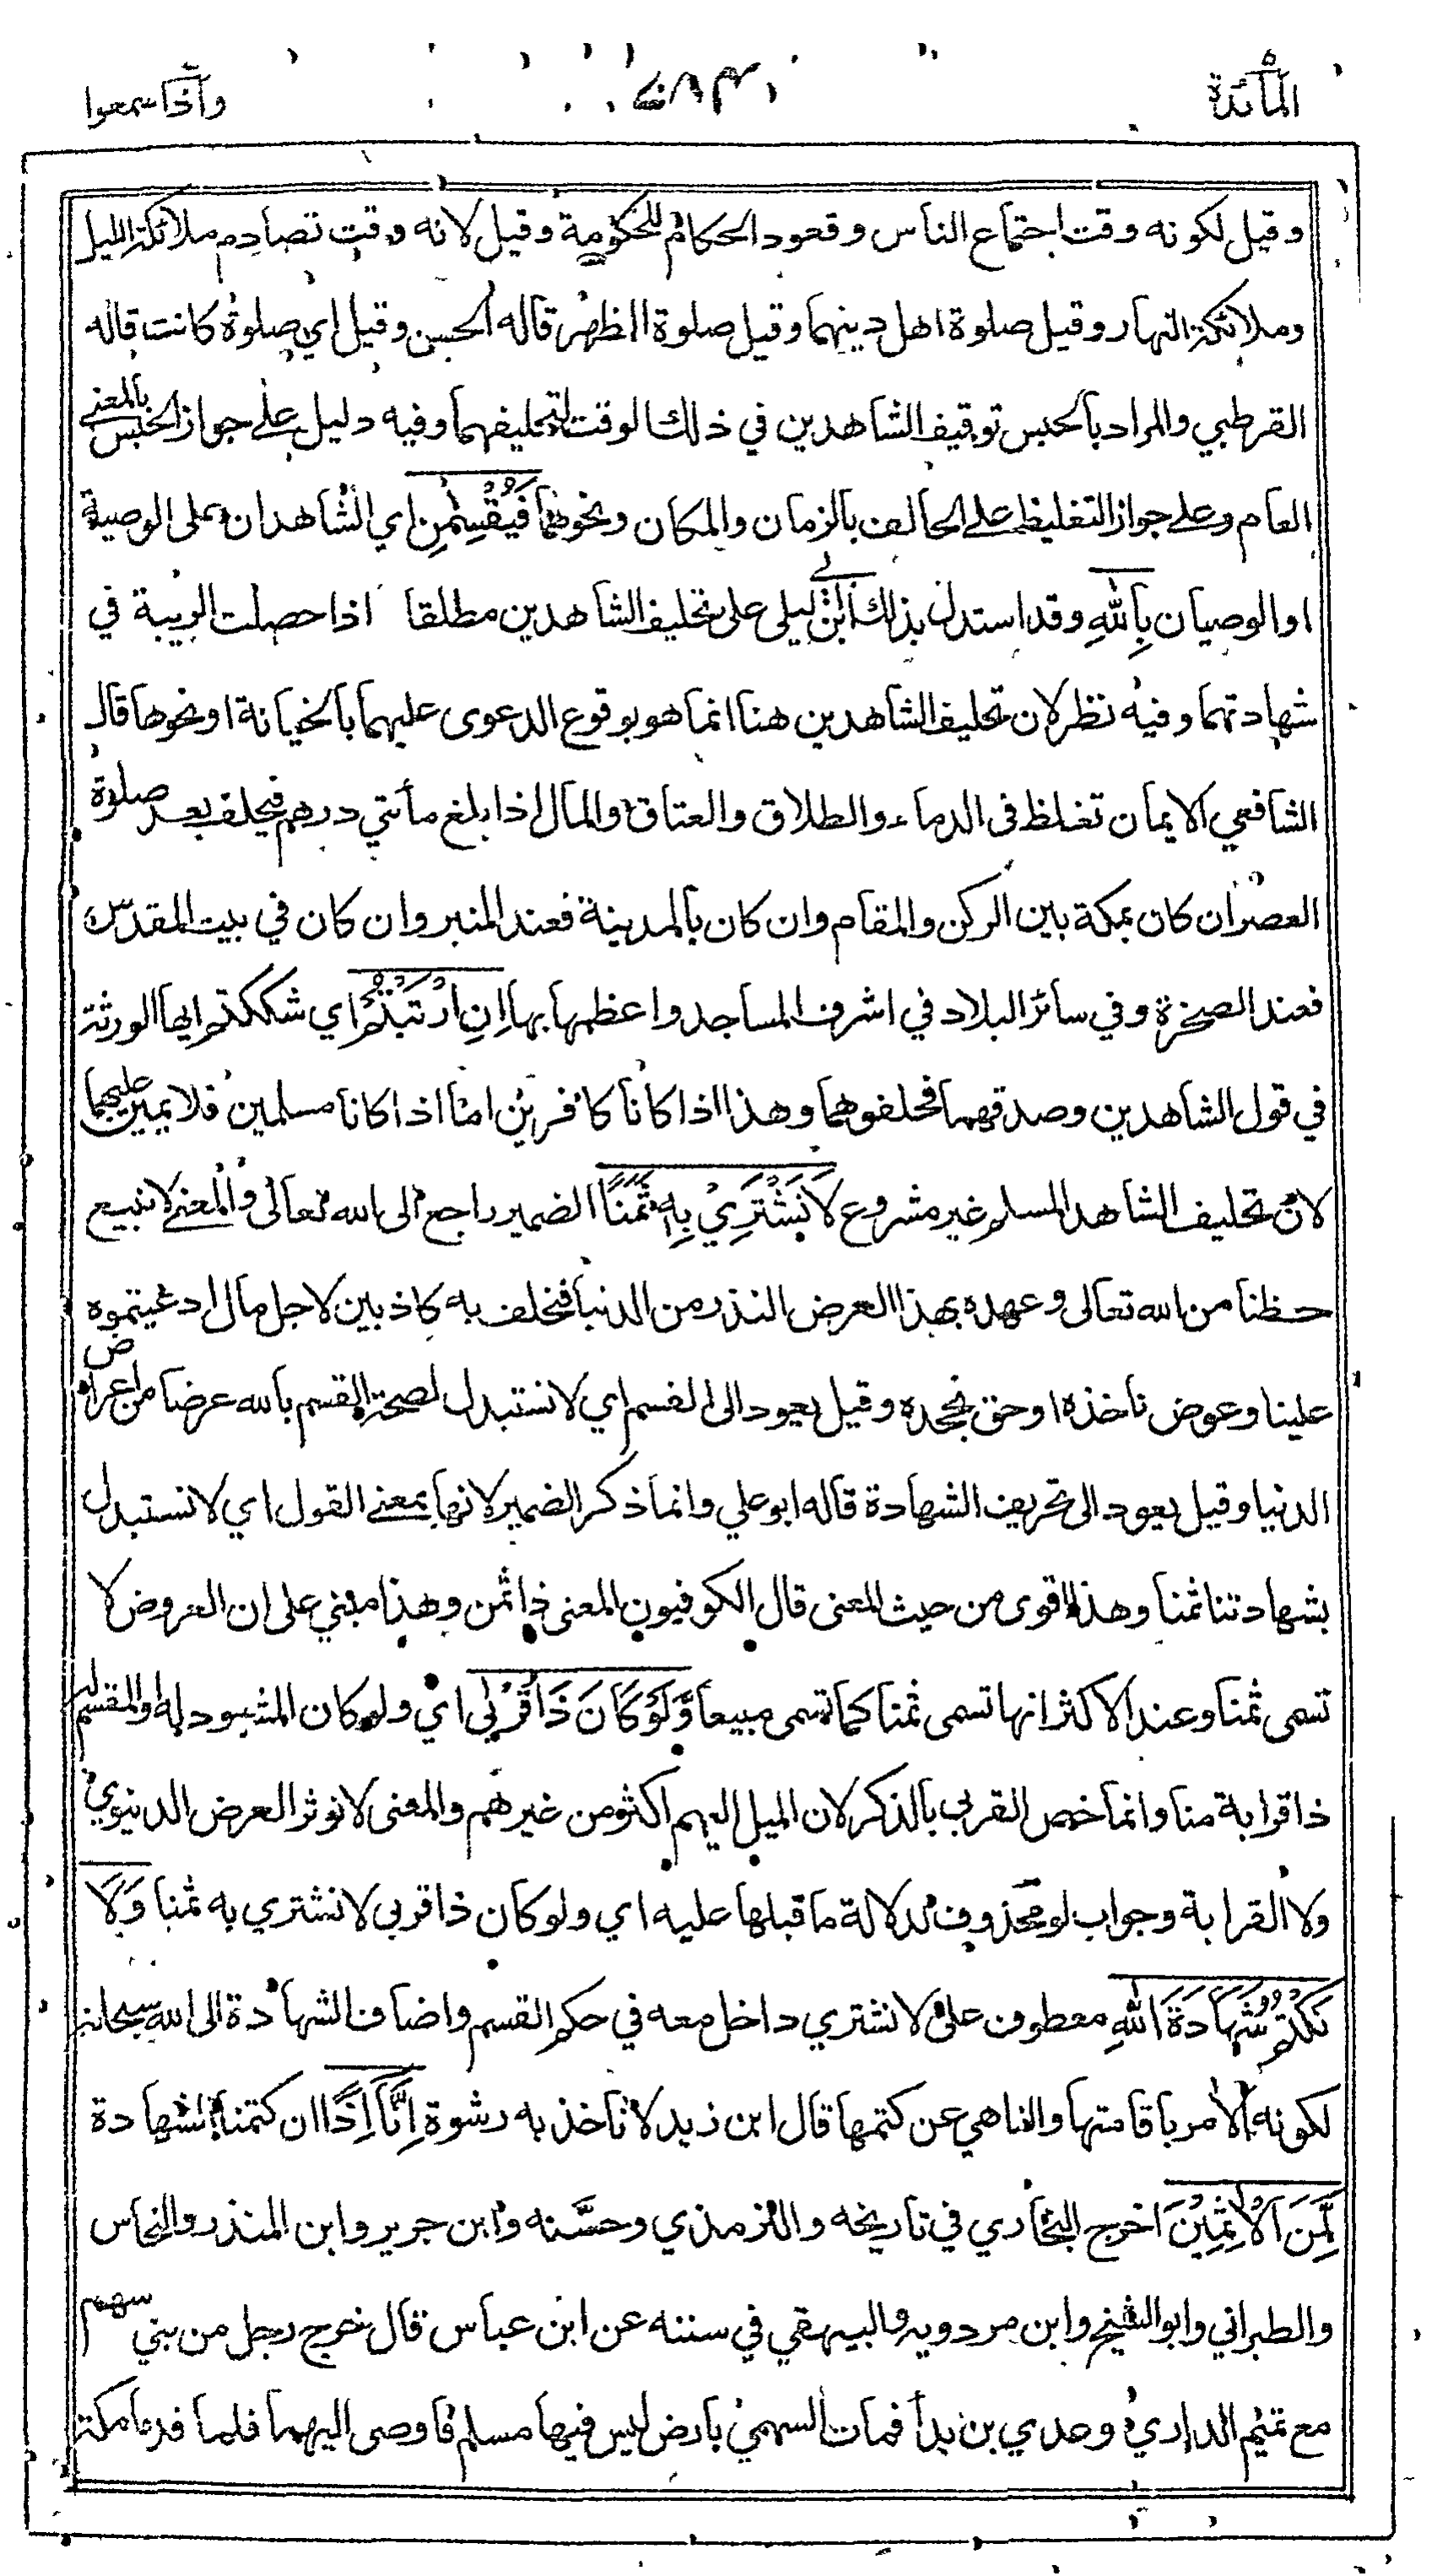 المائدة
واذا سمعوا
وقيل لكونه وقت اجتماع الناس وقعود الحكام للحكومة وقيل لانه وقت تصادم ملائكة الليل
وملائكة النهار وقيل صلوة اهل دينهما وقيل صلوة الظهر قاله الحسن وقيل اي صلوة كانت قاله
القرطبي والمراد بالحبس توقيف الشاهدين في ذلك الوقت لتحليفهما وفيه دليل على جواز الحبس بالمعنى
العام وعلى جواز التغليظ على الحالف بالزمان والمكان ونحوهما فَيُقْسِمٰنِ اي الشاهدان على الوصية
او الوصيان بِاللّٰهِ وقد استدل بذلك ابن ابي ليلى على تحليف الشاهدين مطلقا اذا حصلت الريبة في
شهادتهما وفيه نظر لان تحليف الشاهدين هنا انما هو بوقوع الدعوى عليهما بالخيانة او نحوها قال
الشافعي الايمان تغلظ فى الدماء والطلاق والعتاق والمال اذا بلغ مأتي درهم فيحلف بعد صلوة
العصر ان كان بمكة بين الركن والمقام وان كان بالمدينة فعند المنبر وان كان في بيت المقدس
فعند الصخرة وفي سائر البلاد في اشرف المساجد واعظمها بها اِنِ ارْتَبْتُمْ اي شككتم ايها الورثة
في قول الشاهدين وصدقهما فحلفوهما وهذا اذا كانا كافرين اما اذا كانا مسلمين فلا يمين عليهما
لان تحليف الشاهد المسلم غير مشروع لَا نَشْتَرِيْ بِهٖ ثَمَنًا الضمير راجع الى الله تعالى والمعنى لا نبيع
حظنا من الله تعالى وعهده بهذا العرض النذر من الدنيا فنحلف به كاذبين لاجل مال ادعيتموه
علينا وعوض نأخذه او حق نجحده وقيل يعود الى القسم اي لا نستبدل لصحة القسم بالله عرضا من اعراض
الدنيا وقيل يعود الى تحريف الشهادة قاله ابو علي وانما ذكر الضمير لانها بمعنى القول اي لا نستبدل
بشهادتنا ثمنا وهذا اقوى من حيث المعنى قال الكوفيون المعنى ذا ثمن وهذا مبني على ان العروض لا
تسمى ثمنا وعند الاكثر انها تسمى ثمنا كما تسمى مبيعا وَّلَوْ كَانَ ذَا قُرْبٰى اي ولو كان المشهود له او المقسم له
ذا قرابة منا وانما خص القربى بالذكر لان الميل اليهم اكثر من غيرهم والمعنى لا نوثر العرض الدنيوي
ولا القرابة وجواب لو محذوف لدلالة ما قبلها عليه اي ولو كان ذا قربى لا نشتري به ثمنا وَلَا
نَكْتُمُ شَهَادَةَ اللّٰهِ معطوف على لا نشتري داخل معه في حكم القسم واضاف الشهادة الى الله سبحانه
لكونه الآمر باقامتها والناهي عن كتمها قال ابن زيد لا نأخذ به رشوة اِنَّا اِذًا ان كتمنا الشهادة
لَّمِنَ الْاٰثِمِيْنَ اخرج البخاري في تاريخه والترمذي وحسَّنه وابن جرير وابن المنذر والنحاس
والطبراني وابو الشيخ وابن مردويه والبيهقي في سننه عن ابن عباس قال خرج رجل من بني سهم
مع تميم الداري وعدي بن بدأ فمات السهمي بارض ليس فيها مسلم فاوصى اليهما فلما قدما مكة